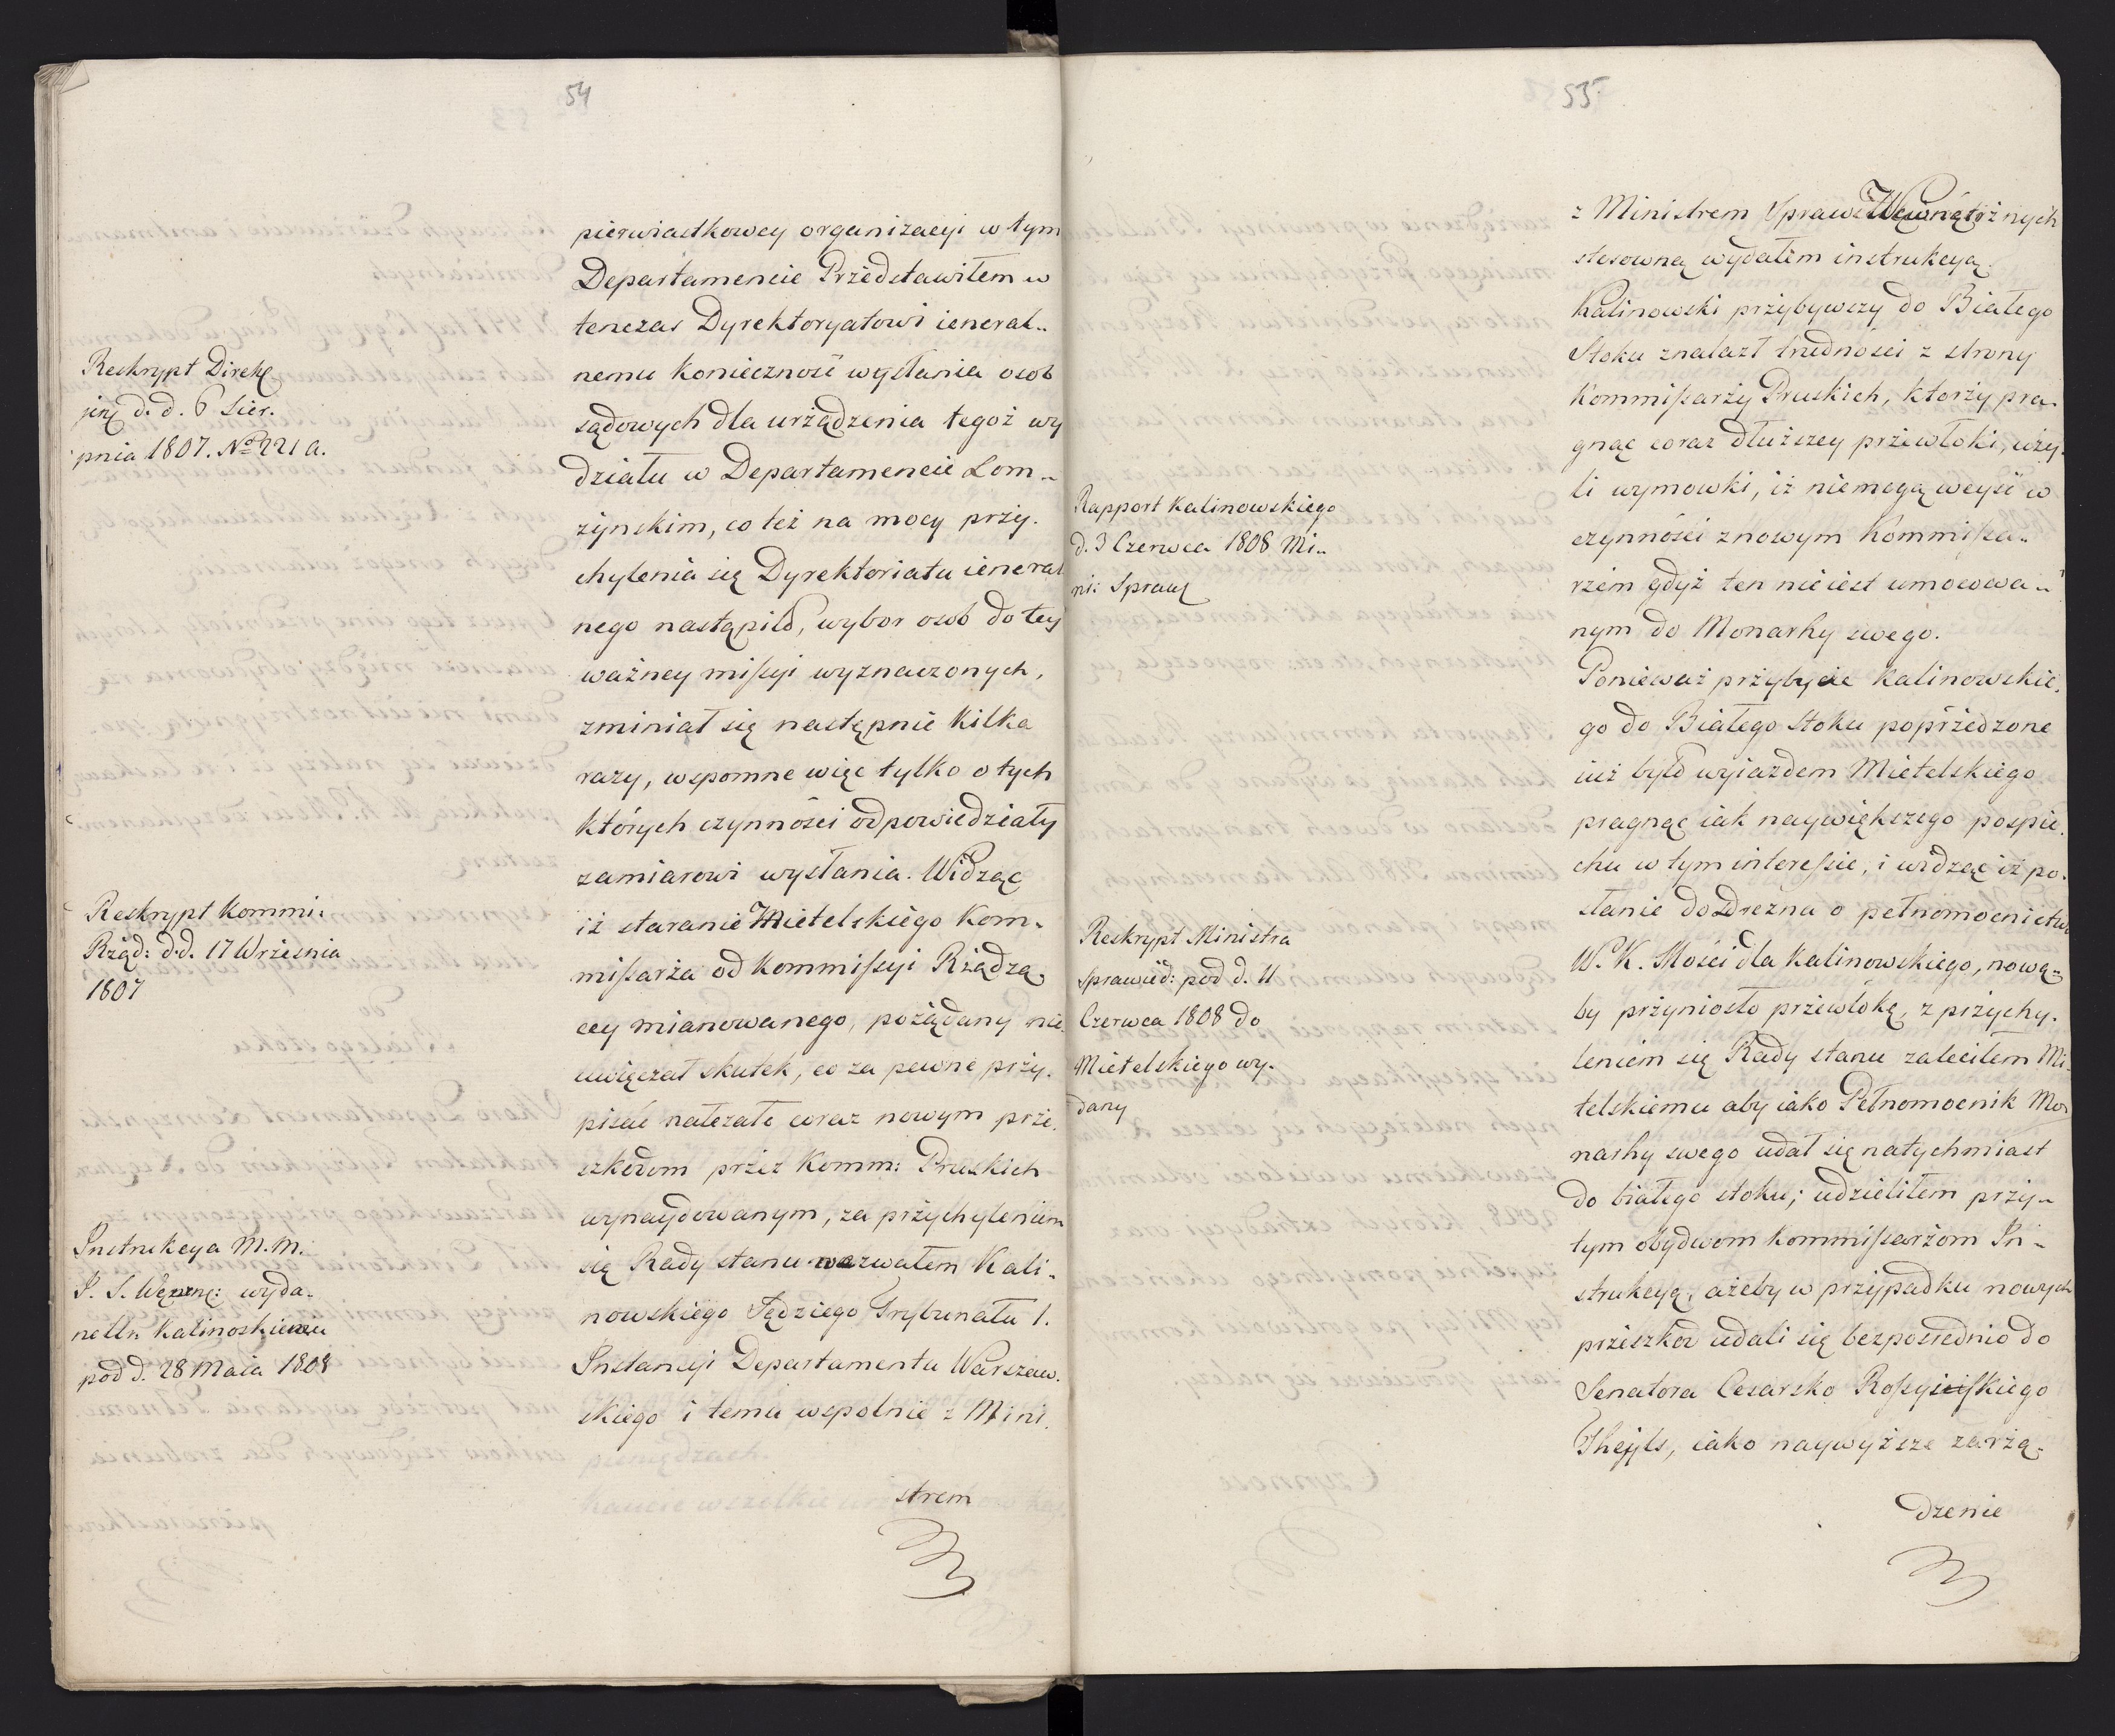 54
Reskrypt Direkc
jeng d. d. 6 Sier.
pnia 1807. No 221 a.
Reskrypt Kommi:
Rząd: d.d. 17 Września
1807
Instrukcya M. M.
S. S. Węwnę: wyda-
na Kalinoskiemu
pod d. 28 Maia 1808
pierwiastkowey organizacyi w tym
Departamencie Przedstawiłem w
tenczas Dyrektoryatowi ieneral..
nemu Konieczność wysłania osob
sądowych dla urżądzenia tegoż wy
działu w Departamencie Łom-
żynskim, co też na mocy przy.
chylenia się Dyrektoriatu ieneral
nego nastąpiło, wybor osob do tey
ważney missyi wyznaczonych,
zminiał się następnie Kilka
razy, wspomne więc tylko o tych
których czynności odpowiedziały
zamiarowi wysłania. Widząc
iż staranie Mietelskiego Kom-
missarża od Kommissyi Rżądzą
cey mianowanego, pożądany nie
uwięczał skutek, co za pewne przy.
pisać należało coraz nowym prze.
szkodom przez Komm: Pruskich
wynaydowanym, za przychyleniem
się Rady stanu wezwałem Kali-
nowskiego Sędziego Trybunału 1.
Instancyi Departamentu Warszaw.
skiego i temu wspolnie z Mini.
strem
55
Rapport Kalinowskiego
d. 3 Czerwca 1808 Mi..
ni: Spraw
Reskrypt Ministra
Sprawied: pod d. 11
Czerwca 1808 do
Mietelskiego wy-
dany
z Ministrem Spraw Wewnętrżnych
stosowną wydałem instrukcyą.
Kalinowski przybywszy do Białego
Stoku znalazł trudności z strony
Kommissarży Pruskich, ktorży pra-
gnąc coraz dłuższey przewłoki, uży-
li wymowki, iż niemogą weyść w
czynności z nowym Kommissa..
rzem gdyż ten nie iest umocowa..
nym do Monarhy swego.
Ponieważ przybycie Kalinowskie.
go do Białego Stoku poprżedzone
iuż było wyiazdem Mietelskiego
pragnąc iak naywiększego pospie.
chu w tym interessie, i widząc iż po.
słanie do Drezna o pełnomocnictwo
W. K. Mości dla Kalinowskiego, nową-
by przyniosło przewłokę, z przychy.
leniem się Rady stanu zaleciłem Mi-
telskiemu aby iako Pełnomocnik Mo
narhy swego udał się natychmiast
do białego stoku; udzieliłem przy-
tym obydwom Kommissarżom In-
strukcyą, ażeby w przypadku nowych
przeszkod udali się bezpośrednio do
Senatora Cesarsko Rossyiskiego
Theyls, iako naywyższe zarżą-
dzenie